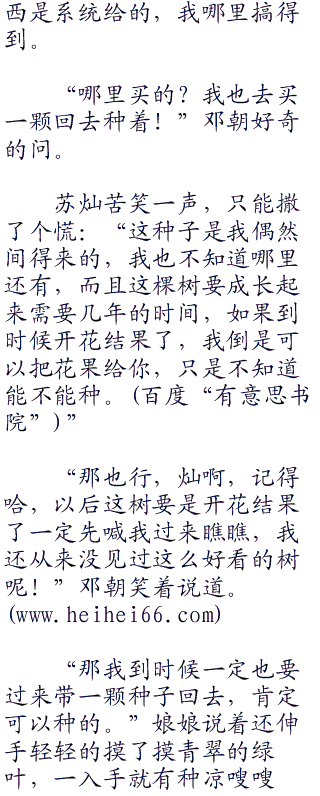 西是系统给的，我哪里搞得
到。
“哪里买的？我也去买
一颗回去种着！”邓朝好奇
的问。
苏灿苦笑一声，只能撒
了个慌：“这种子是我偶然
间得来的，我也不知道哪里
还有，而且这棵树要成长起
来需要几年的时间，如果到
时候开花结果了，我倒是可
以把花果给你，只是不知道
能不能种。(百度“有意思书
院”)”
“那也行，灿啊，记得
哈，以后这树要是开花结果
了一定先喊我过来瞧瞧，我
还从来没见过这么好看的树
呢！”邓朝笑着说道。
(www.heihei66.com)
“那我到时候一定也要
过来带一颗种子回去，肯定
可以种的。”娘娘说着还伸
手轻轻的摸了摸青翠的绿
叶，一入手就有种凉嗖嗖